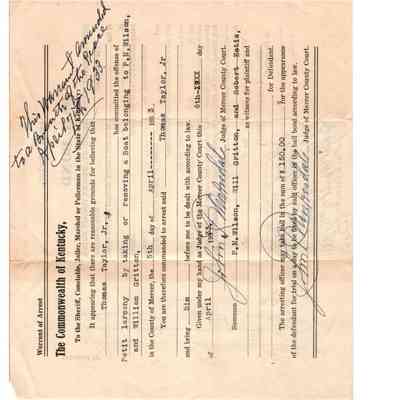 Warrant of Arrest
The Commonwealth of Kentucky,
To the Sheriff, Constable, Jailer, Marshal or Policeman in the State of Kentucky:
It appearing that there are reasonable grounds for believing that
Thomas Taylor, Jr.,
has committed the offense of
Petit larceny by taking or removing a Boat belonging to P.N. Wilson,
and William Gritton,
in the County of Mercer, the 5th day of April 193
You are therefore commanded to arrest said Thomas Taylor, Jr
and bring Him before me to be dealt with according to law.
Given under my hand as Judge of the Mercer County Court this 6th day
of April
Judge of Mercer County Court.
Summon P.N. Wilson, Bill Gritton, and Robert Estis,
as witness for plaintiff and
for Defendant.
The arresting officer may take bail in the sum of $ 150.00 for the appearance
of the defendant for trial on
bond according to law.
Judge of Mercer County Court.
This Warrant
to a
of the Peace
April 1933